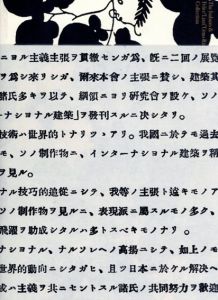 ニヨル主義主張ヲ貫徹センガ爲、旣ニ二回ノ展覽
ヲ爲シ來リシガ、爾來本會ノ主張ニ贊シ、建築其
諸氏多キヲ以テ、綱領ニヨリ研究會ヲ設ケ、ソノ
ーナショナル建築」ヲ發刊スルニ決シタリ。
技術ハ世界的トナリツヽアリ。我國ニ於テモ過去
モ、ソノ制作物ニ、インターナショナル建築ヲ稱
ヲ見ル。
ナル技巧的追從ニシテ、我等ノ主張ト遠キモノア
ソノ制作物ヲ見ルニ、表現派ニ屬スルモノ多ク、
飛躍ヲ助成シタルハ多トスベキモノナリ。
ナショナル、ナルソレヘノ高揚ニシテ、如上ノモ
世界的動向ニシタガヒ、且ツ日本ニ於ケル解決ヘ
或ハ主義ヲ共ニセントスル諸氏ノ共同努力ヲ歡迎
Collection